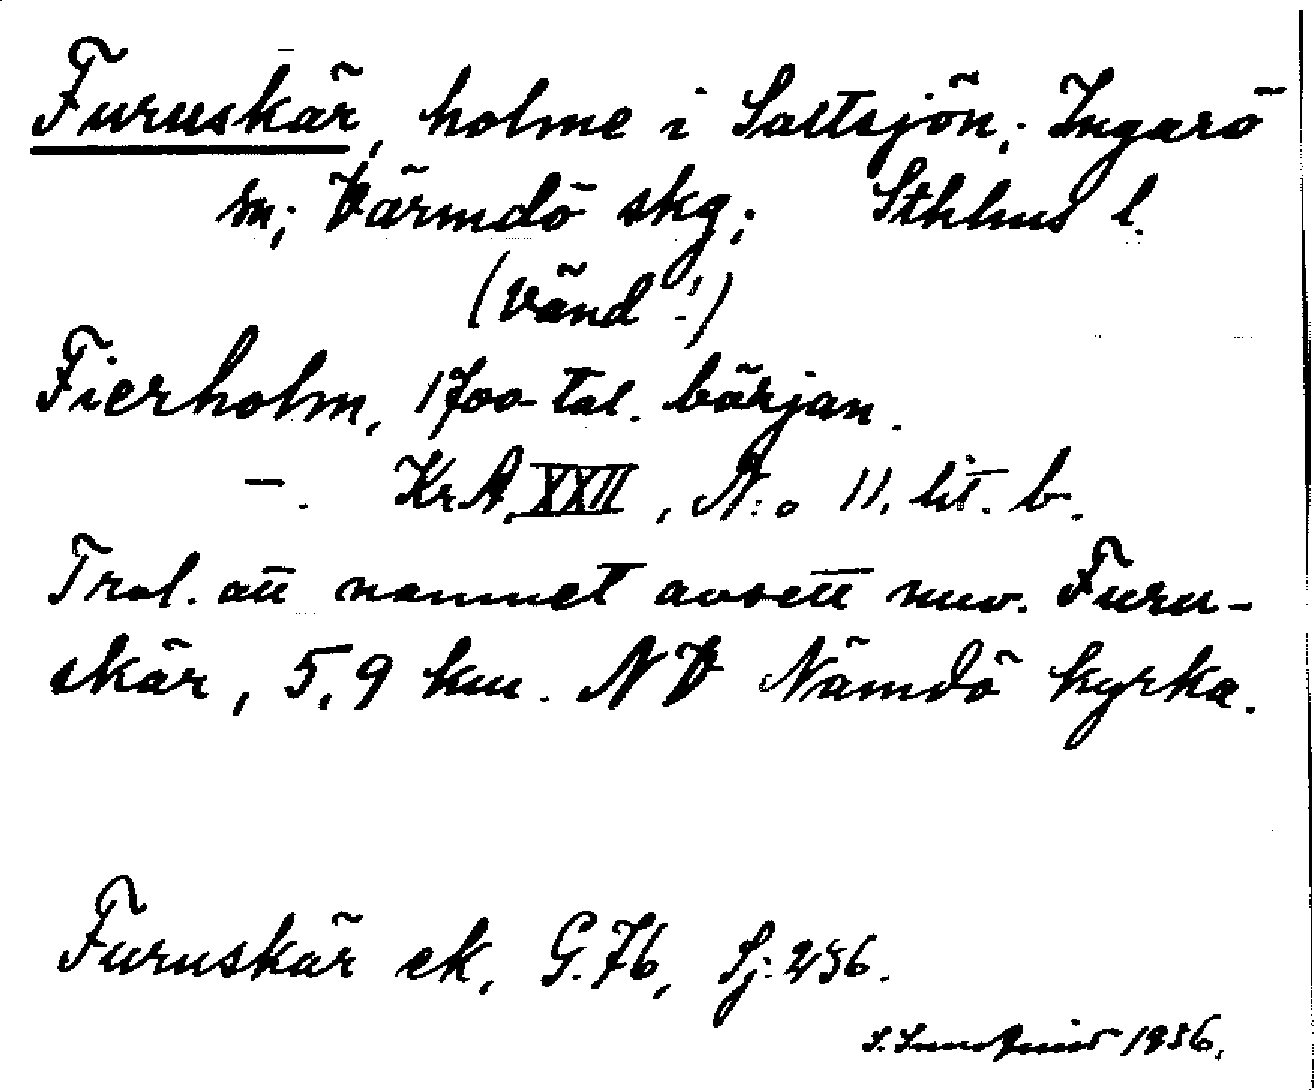 Furuskär, holme i Saltsjön; Ingarö
sn; Värmdö skg; Sthlms l.
(Vänd!)
Fierholm, 1700-tal. början.
–. KrA XXII, N:o 11. lit. b.
Trol. att namnet avsett nuv. Furu-
skär, 5,9 km. NV Nämdö kyrka.
Furuskär ek, G.76, Sj. 236.
S. 1936.